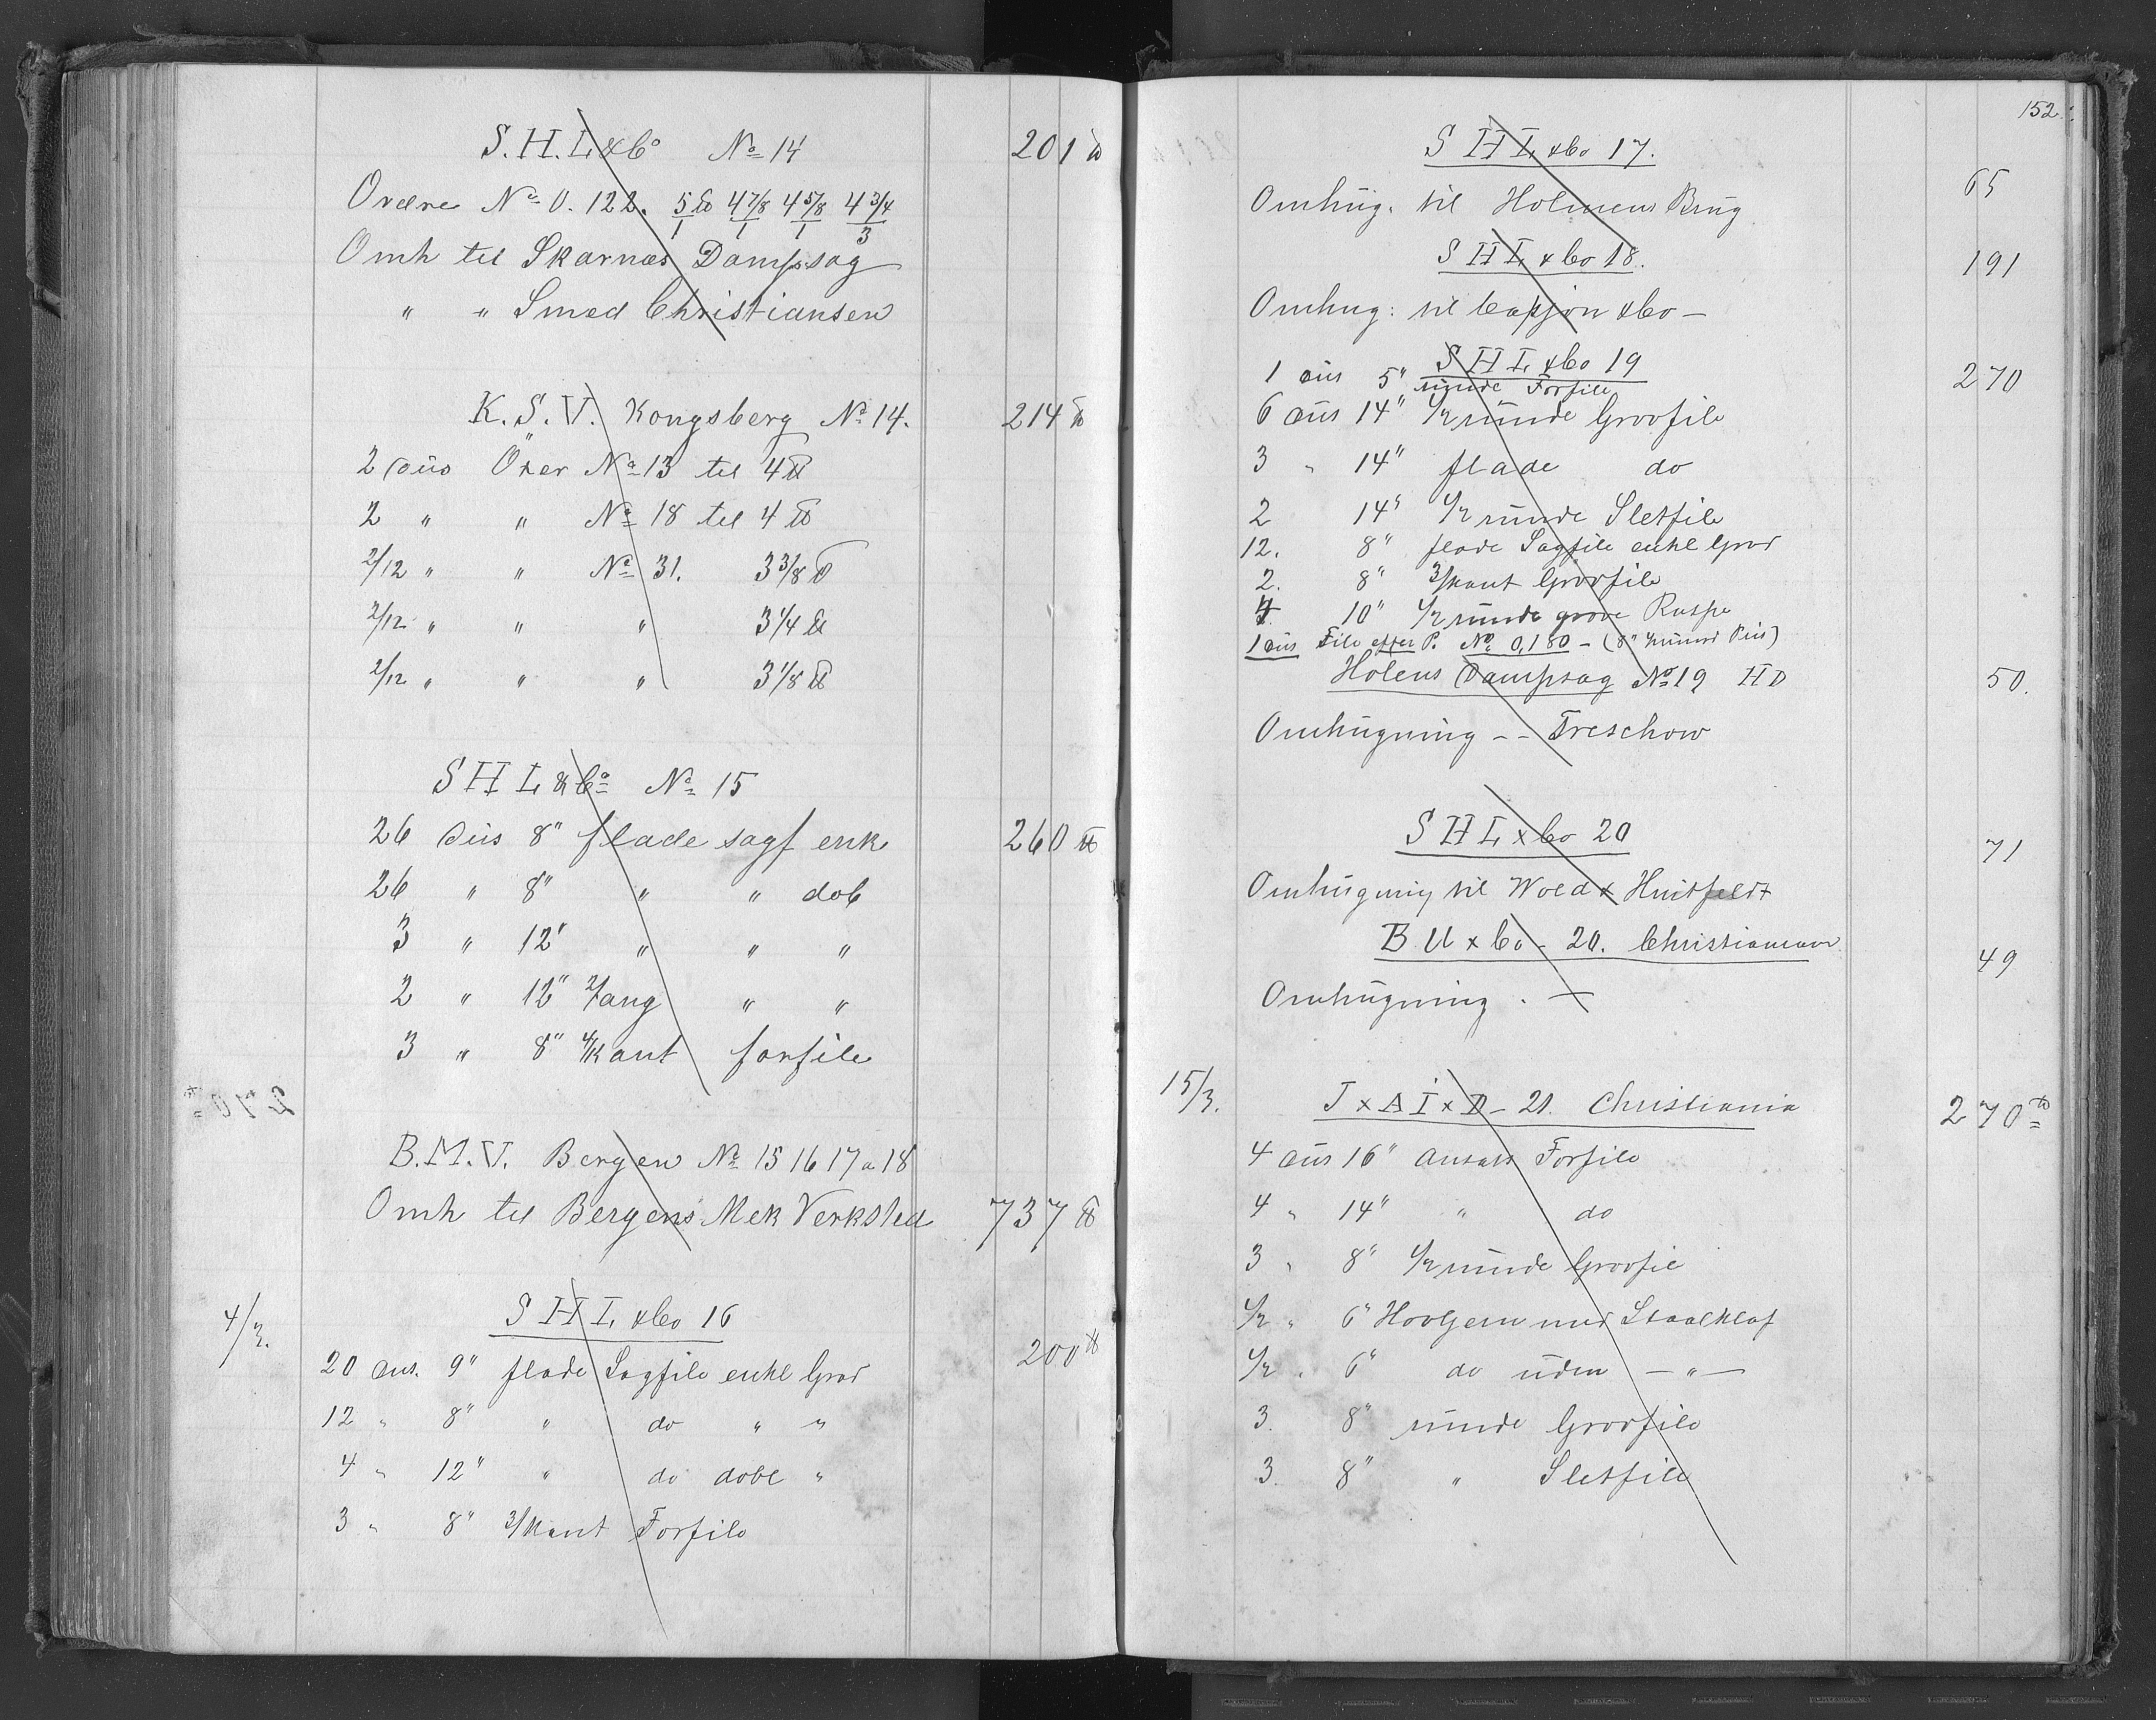 S.H.L. & Co No 14 201 ℔
Ordre No 0.122. 5/1 ℔ 4 7/8/1 4 5/8/1 4 3/4/3
Omh til Skarnæs Dampsag
" " Smed Christiansen
K.S.V. Kongsberg No 14. 214 ℔
2 dus Öxer No 13 til 4 ℔
2 " " No 18 til 4 ℔
2/12 " " No 31. 3 3/8 ℔
2/12 " " " 3 1/4 ℔
2/12 " " " 3 1/8 ℔
S H L & Co No 15
26 dus 8" flade sagf enk 260 ℔
26 " 8" " " dob
3 " 12" " " "
2 " 12" 2/ang " "
3 " 8" 4/kant forfile
B.M.V. Bergen No 15 16 17 a 18
Omh til Bergens Mek Verksted 737 ℔
4/3. S H L & Co 16
20 dus. 9" flade Sagfile enkl Grad 200 ℔
12 " 8" " do " "
4 " 12" " do dobl "
3 " 8" 3/kant Forfile
152.
S H L & Co 17.
Omhug. til Holmens Brug 65
S H L & Co 18. 191
Omhug: til & Co –
S H L & Co 19 270
1 dus 5" runde Forfile
6 dus 14" 1/2 runde Grovfile
3 " 14" flade do
2 14" 1/2 runde Sletfile
12. 8" flade Sagfile enkl Grad
2. 8" 3/kant Grovfile
4 10" 1/2 runde grove Raspe
1 dus File efter P. No 0,180 – (8"
Holens Dampsag No 19 H D 50.
Omhugning – – Treschow
S H L & Co 20 71
Omhugning til Wold & Huitfeldt
B U & Co – 20. 49
Omhugning . —
15/3. J & A I & D – 21. Christiania 270 ℔
4 dus 16" Ansats Forfile
4 " 14" " do
3 " 8" 1/2 runde Grovfil
1/2 " 6" Hovljern med Staalklaf
1/2 " 6" do uden – " –
3. 8" runde Grovfile
3. 8" " Sletfile